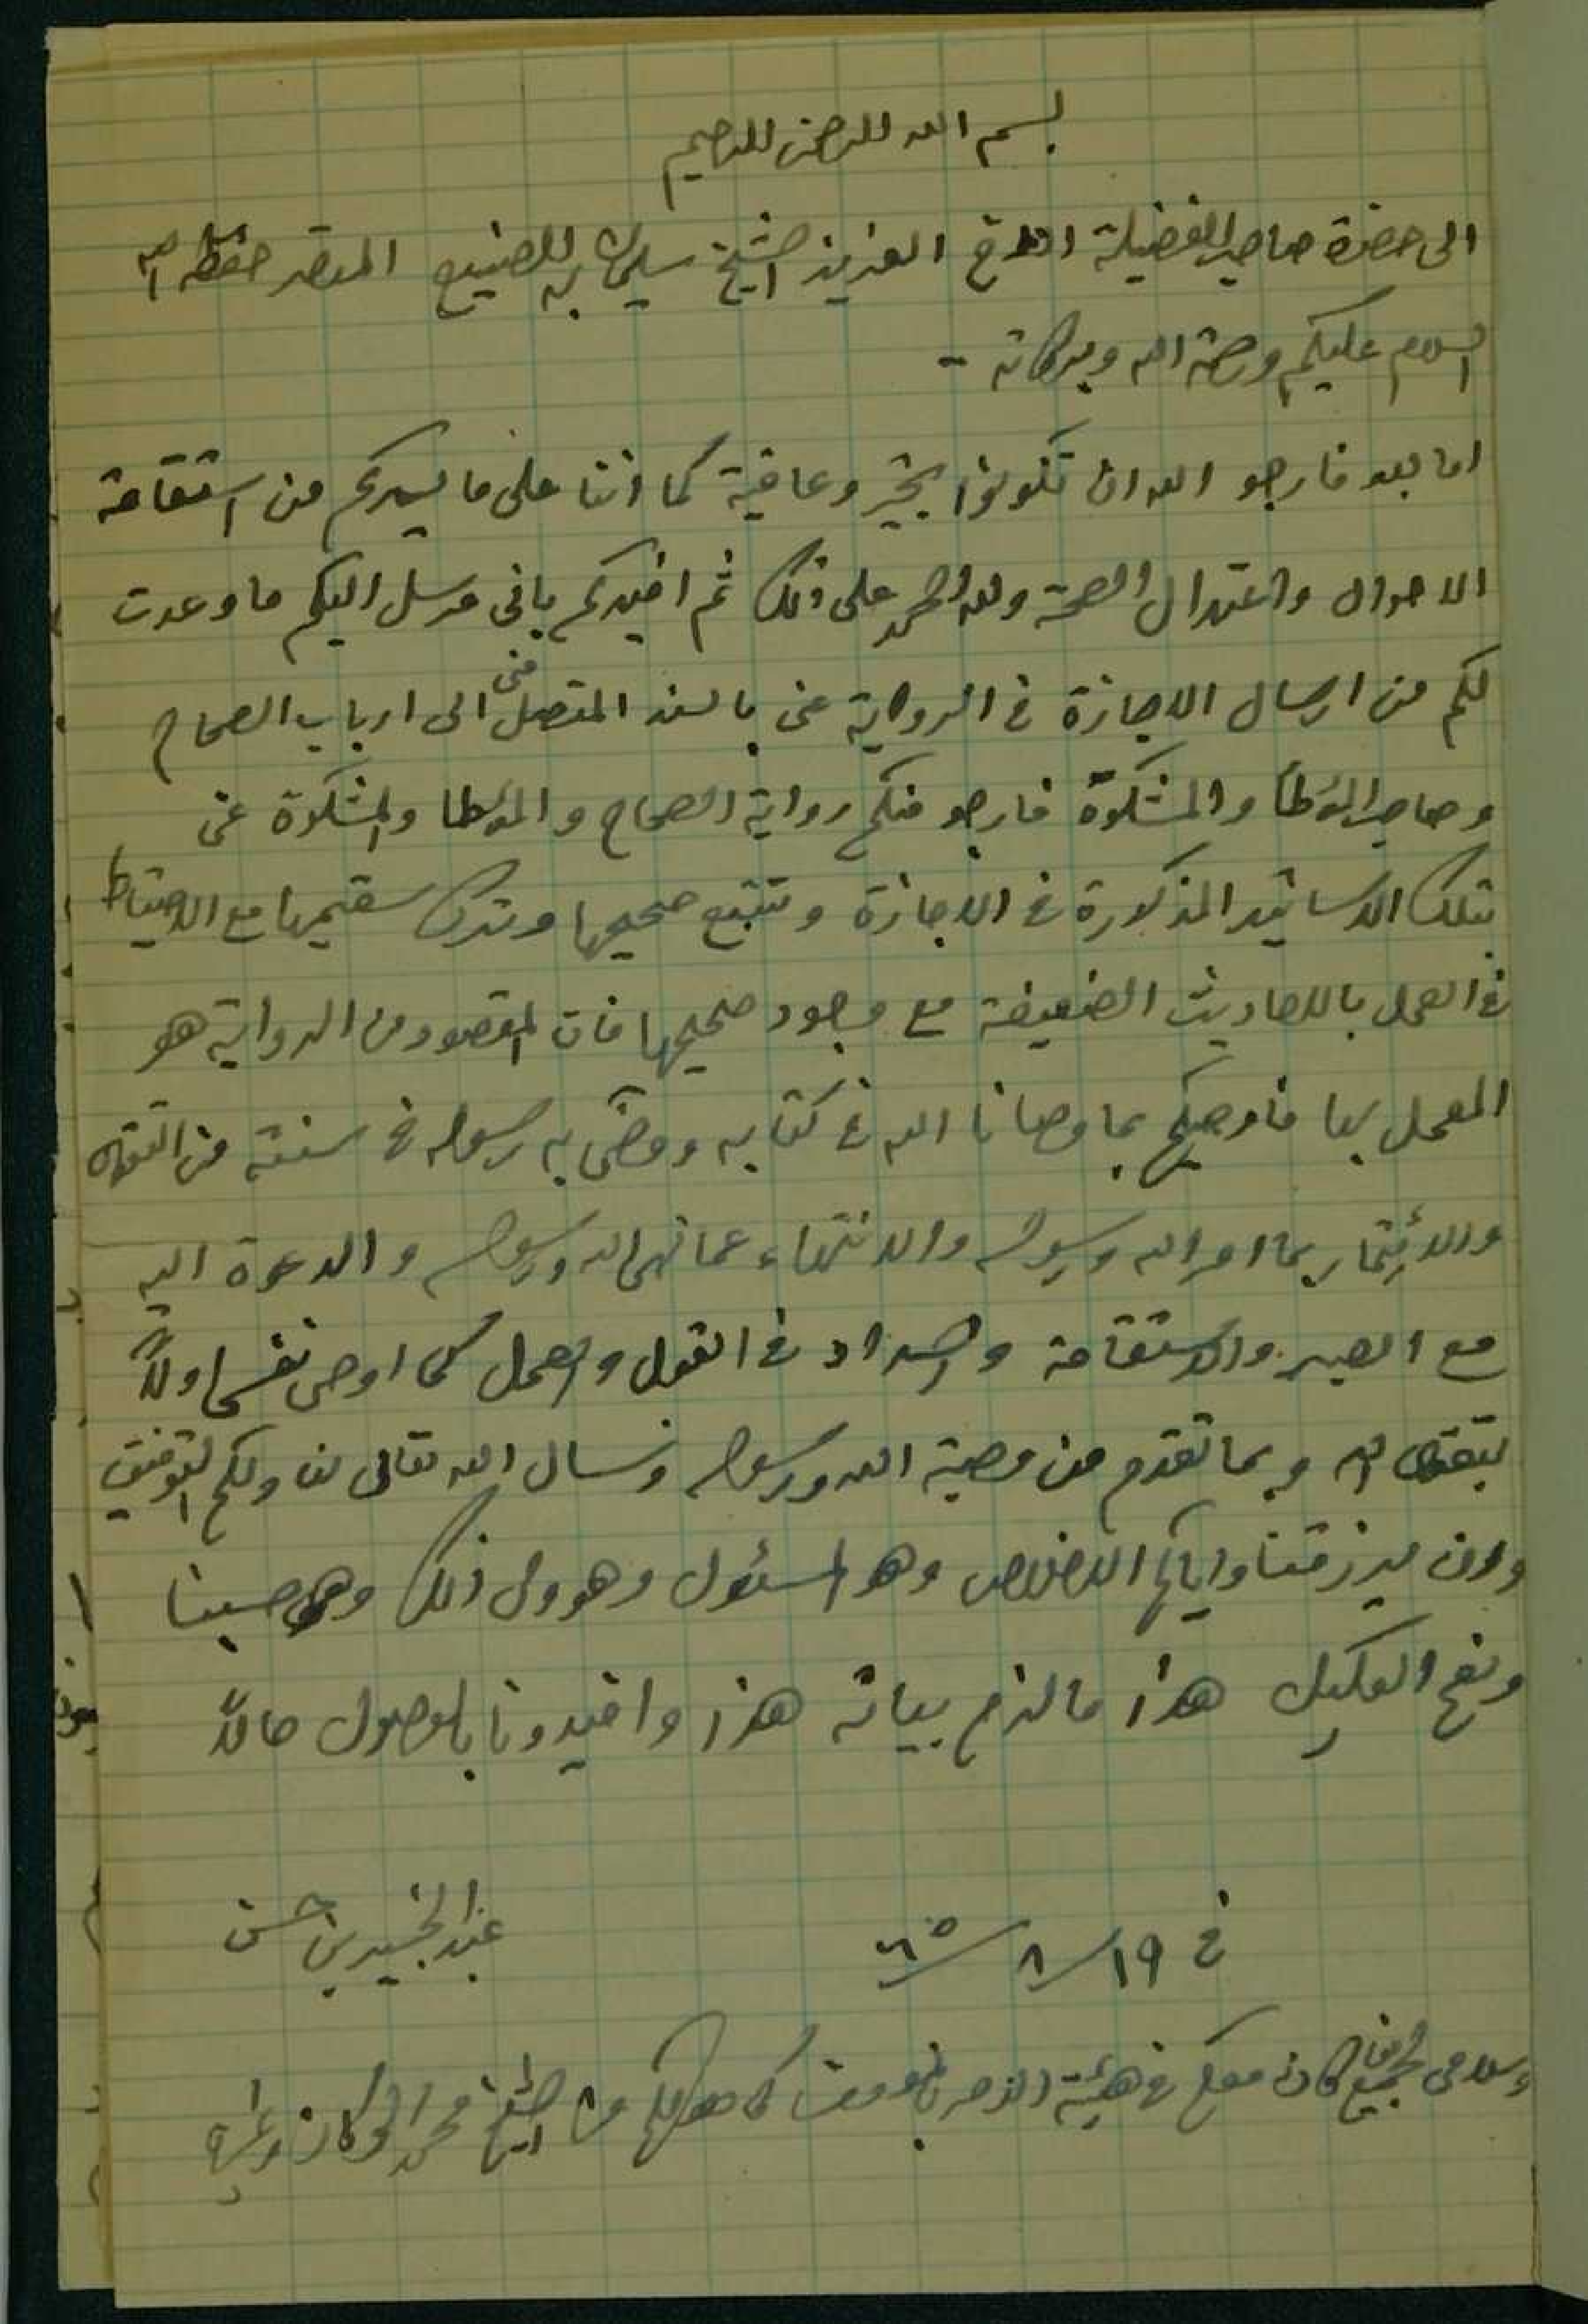 بسم الله الرحمن الرحيم
الى حضرة صاحب الفضيلة الاخ العزيز الشيخ سليمان الصنيع الموقر حفظه الله
السلام عليكم ورحمة الله وبركاته -
اما بعد فارجو الله ان تكونوا بخير وعافية كما اننا على ما يسركم من استقامة
الاحوال واعتدال الصحة ولله الحمد على ذلك ثم افيدكم باني مرسل اليكم ما وعدت
لكم من ارسال الاجازة في الرواية عني بالسند المتصل مني الى ارباب الصحاح
وصاحب الموَطأ والمشكوة فارجو منكم رواية الصحاح والموَطا والمشكوة عني
بتلك الاسانيد المذكورة في الاجازة وتتبع صحيحها وترك سقيمها مع الاحتياط
في العمل بالاحاديث الضعيفة مع وجود صحيحها فان المقصود من الرواية هو
العمل بها فاوصيكم بما وصانا الله في كتابه ووصى به رسوله في سنته من التقوى
والأئتمار بما امر الله ورسوله والانتهاء عما نهى الله ورسوله والدعوة اليه
مع الصبر والاستقامة والسداد في القول والعمل كما اوصى نفسى اولاً
بتقوى الله وبما تقدم من وصية الله ورسوله ونسال الله تعالى لنا ولكم التوفيق
وان يرزقنا واياكم الاخلاص وهو المسئول وهو ولى ذلك وهو حسبنا
ونعم الوكيل هذا ما لزم بيانه هذا وافيدونا بالوصول حالاً
في ١٩/٨/٦٥
عبد الخبير بن حسن
وسلامى لجميع كان معكم في هيئة الامر بالمعروف كما هو لكم من الشيخ محمد وغيره